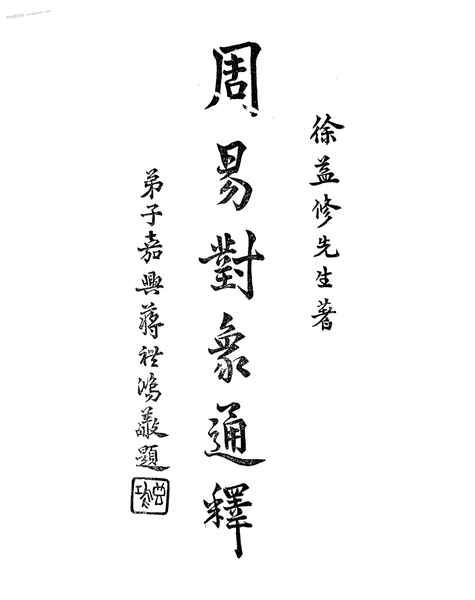 徐益修先生著
周易對象通釋
弟子嘉興蔣禮鴻敬題